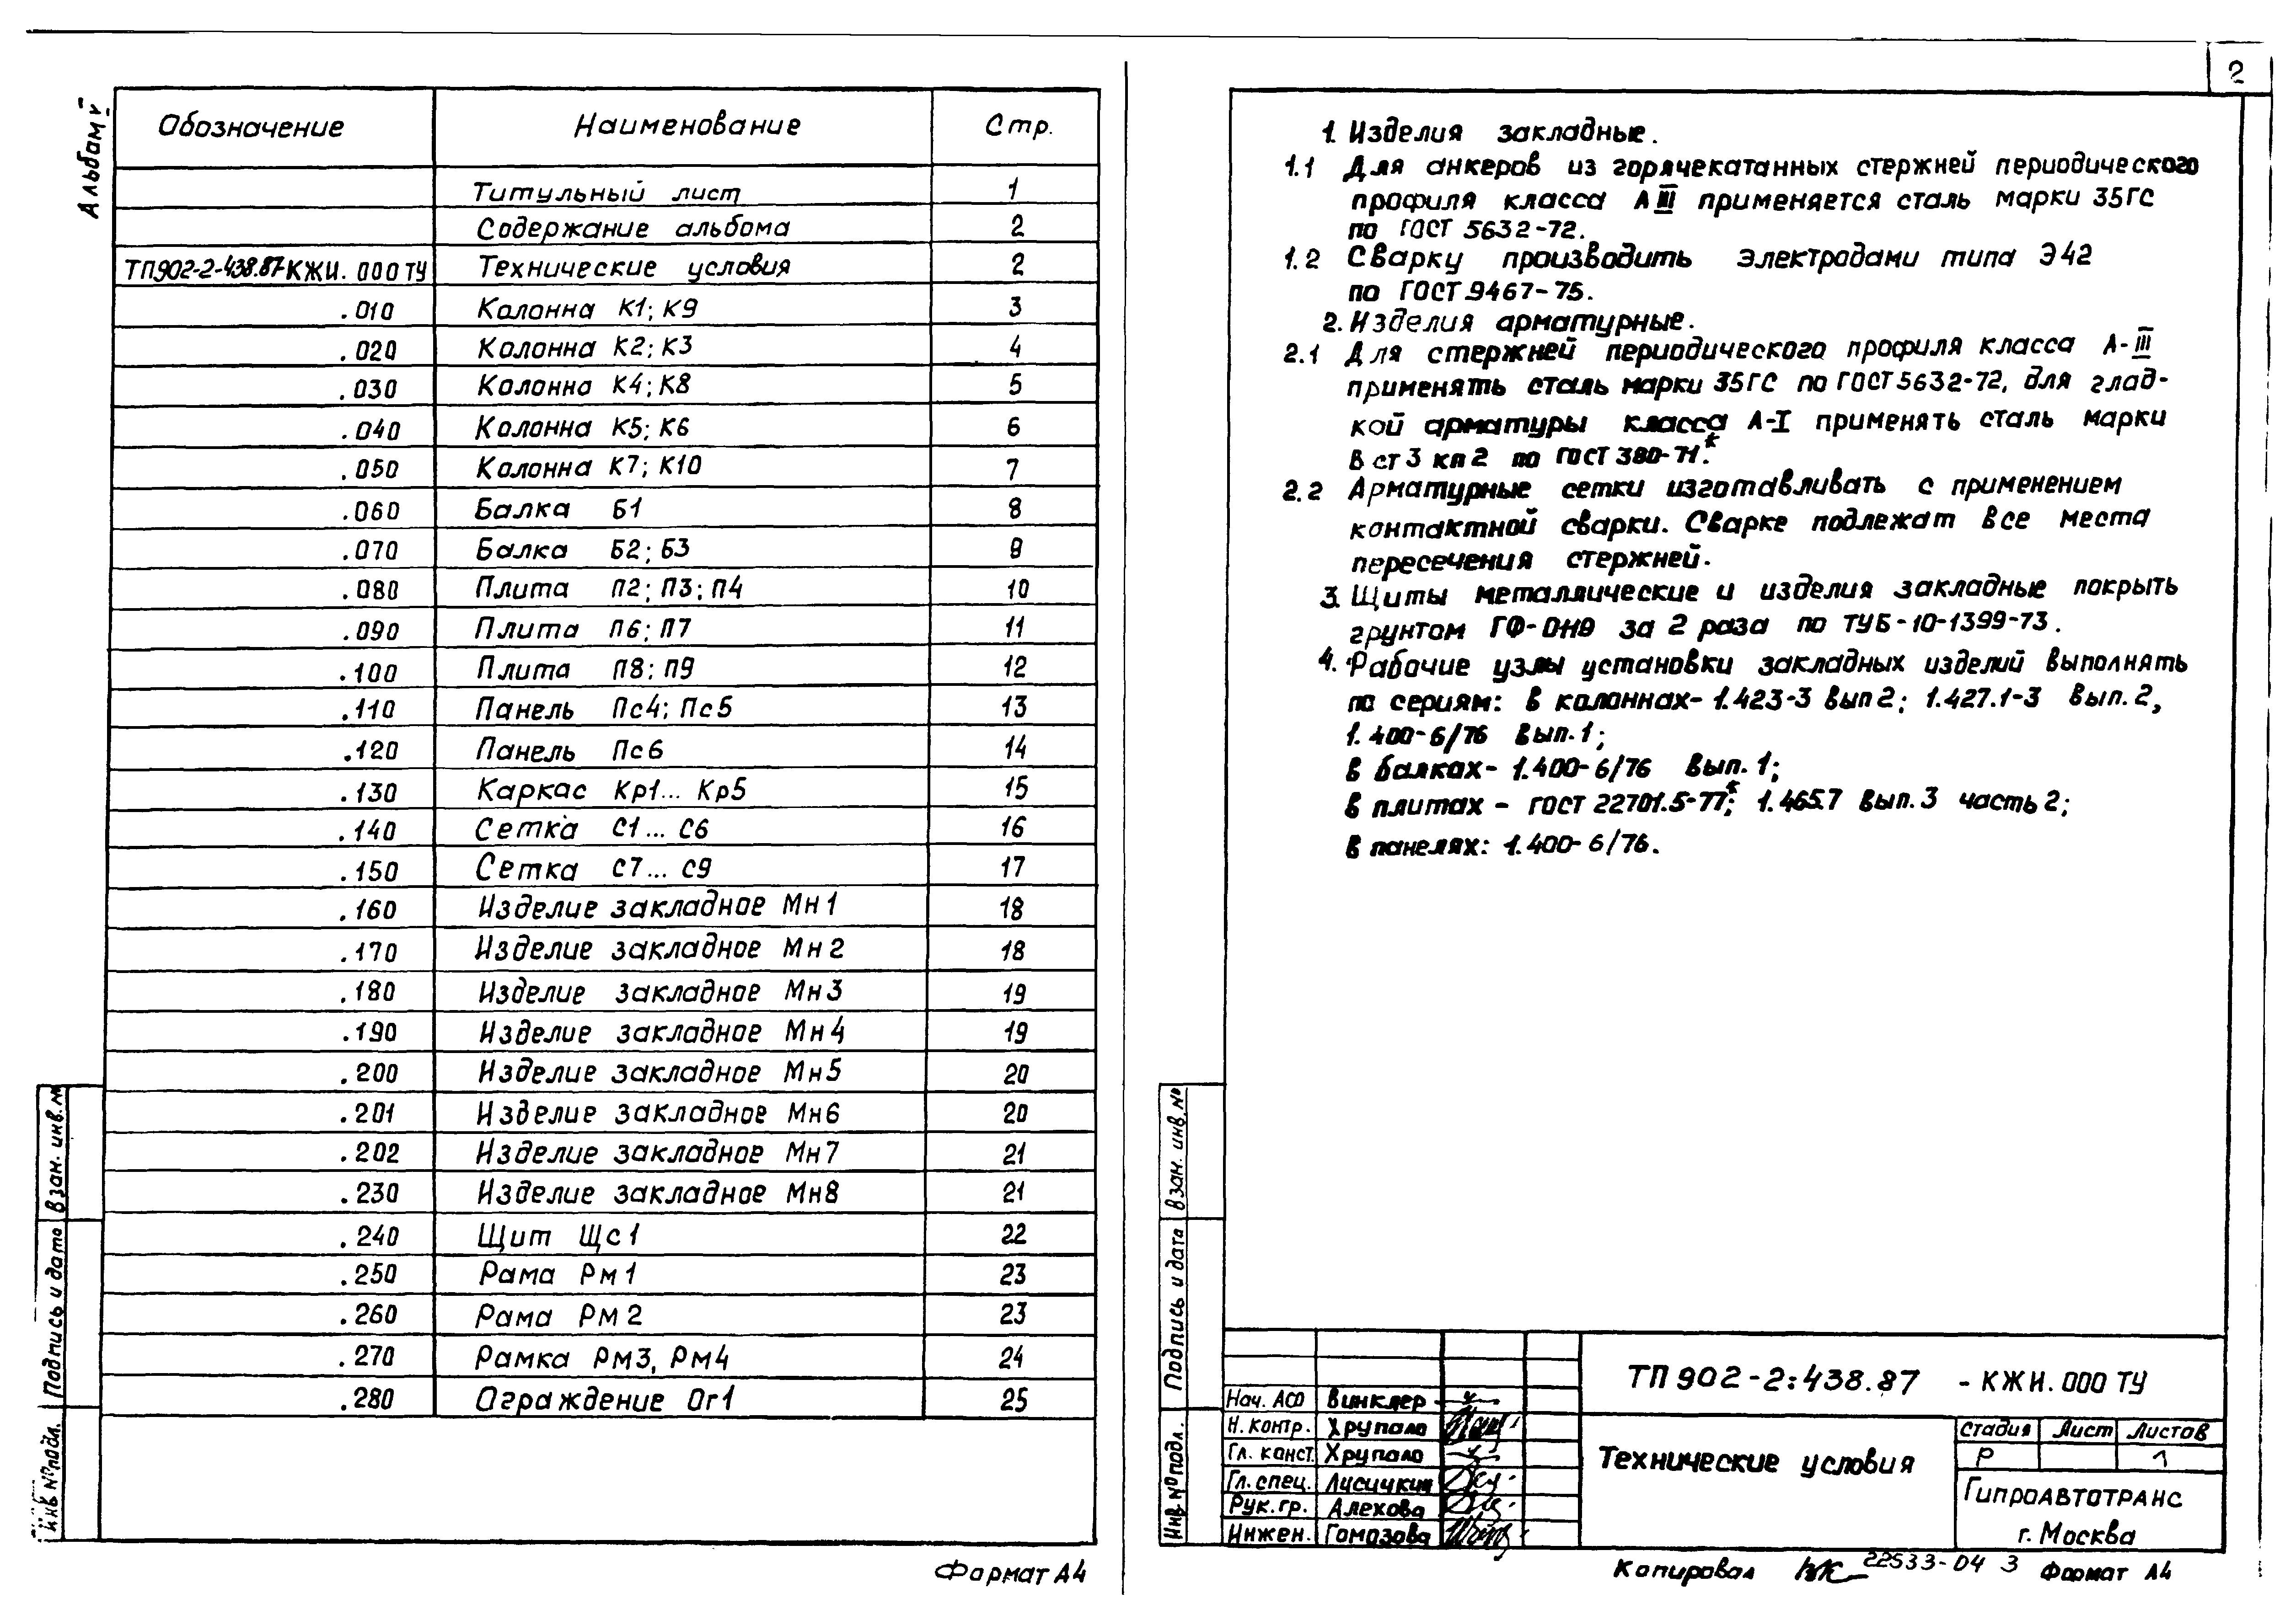 2
Альбом V
Обозначение Наименование Стр.
Титульный лист 1
Содержание альбома 2
ТП902-2-438.87-КЖИ.000ТУ Технические условия 2
.010 Колонна К1; К9 3
.020 Колонна К2; К3 4
.030 Колонна К4; К8 5
.040 Колонна К5; К6 6
.050 Колонна К7; К10 7
.060 Балка Б1 8
.070 Балка Б2; Б3 9
.080 Плита П2; П3; П4 10
.090 Плита П6; П7 11
.100 Плита П8; П9 12
.110 Панель Пс4; Пс5 13
.120 Панель Пс6 14
.130 Каркас Кр1... Кр5 15
.140 Сетка С1... С6 16
.150 Сетка С7... С9 17
.160 Изделие закладное Мн1 18
.170 Изделие закладное Мн2 18
.180 Изделие закладное Мн3 19
.190 Изделие закладное Мн4 19
.200 Изделие закладное Мн5 20
.201 Изделие закладное Мн6 20
.202 Изделие закладное Мн7 21
.230 Изделие закладное Мн8 21
.240 Щит Щс1 22
.250 Рама Рм1 23
.260 Рама Рм2 23
.270 Рамка Рм3, Рм4 24
.280 Ограждение Ог1 25
Взам. инв. №
Подпись и дата
Инв № подл.
Формат А4
1. Изделия закладные.
1.1 Для анкеров из горячекатанных стержней периодического
профиля класса АIII применяется сталь марки 35ГС
по ГОСТ 5632-72.
1.2 Сварку производить электродами типа Э42
по ГОСТ 9467-75.
2. Изделия арматурные.
2.1 Для стержней периодического профиля класса А-III
применять сталь марки 35ГС по ГОСТ 5632-72, для глад-
кой арматуры класса А-I применять сталь марки
В ст 3 кп 2 по ГОСТ 380-71*.
2.2 Арматурные сетки изготавливать с применением
контактной сварки. Сварке подлежат все места
пересечения стержней.
3. Щиты металлические и изделия закладные покрыть
грунтом ГФ-0119 за 2 раза по ТУ6-10-1399-73.
4. Рабочие узлы установки закладных изделий выполнять
по сериям: в колоннах- 1.423-3 вып 2; 1.427.1-3 вып. 2,
1.400-6/76 вып. 1;
в балках- 1.400-6/76 вып. 1;
в плитах - ГОСТ 22701.5-77*; 1.465.7 вып. 3 часть 2;
в панелях: 1.400-6/76.
Взам. инв. №
Подпись и дата
Инв № подл.
ТП 902-2-438.87 - КЖИ. 000 ТУ
Нач. АСО Винклер
Н. контр. Хрупало
Гл. конст. Хрупало
Гл. спец. Лисичкин
Рук. гр. Алехова
Инжен. Гомозова
Технические условия
Стадия Лист Листов
Р 1
ГипроАвтотранс
г. Москва
Копировал 22533-04 3 Формат А4